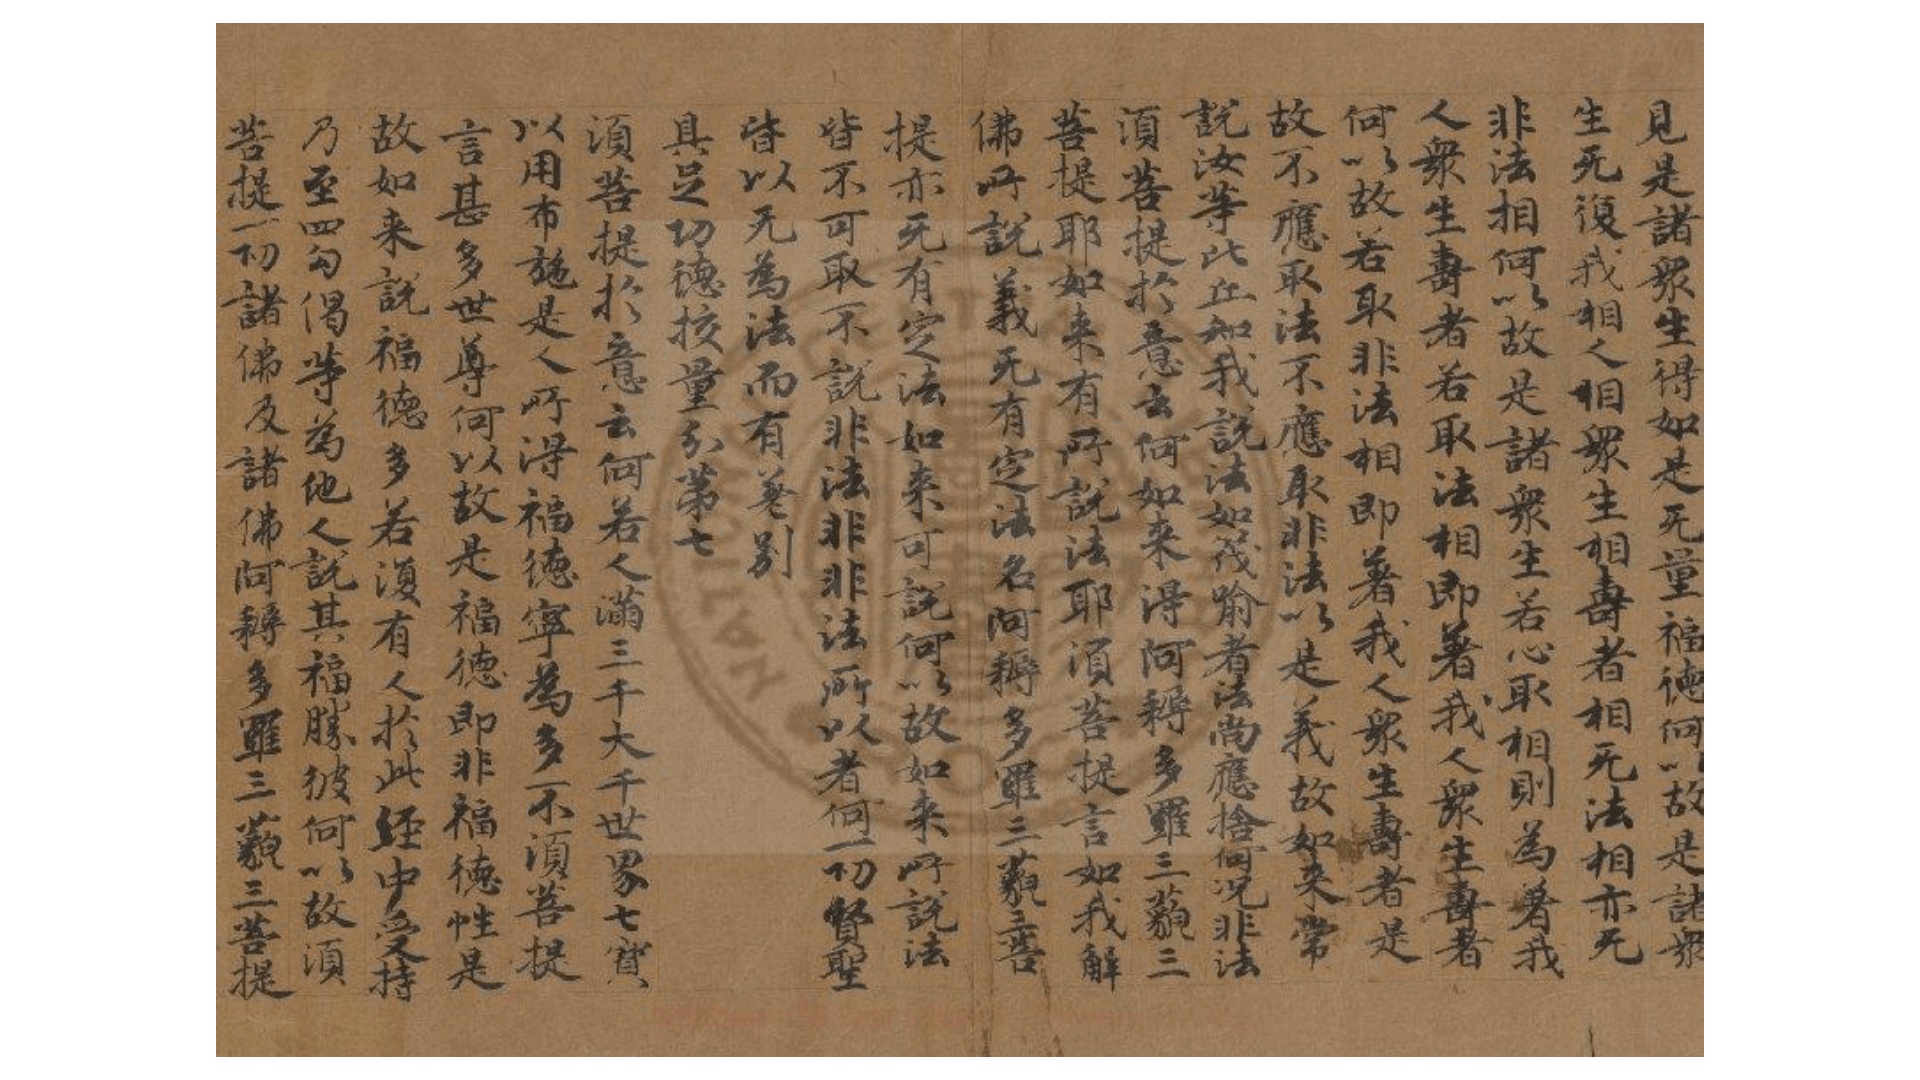 見是諸衆生得如是无量福德何以故是諸衆
生无復我相人相衆生相壽者相无法相亦无
非法相何以故是諸衆生若心取相則為著我
人衆生壽者若取法相即著我人衆生壽者
何以故若取非法相即著我人衆生壽者是
故不應取法不應取非法以是義故如来常
說汝等比丘知我說法如筏喻者法尚應捨何况非法
湏菩提扵意云何如来得阿耨多羅三藐三
菩提耶如来有所說法耶湏菩提言如我解
佛所說義无有定法名阿耨多羅三藐三菩
提亦无有定法如来可說何以故如来所說法
皆不可取不說非法非非法所以者何一切賢聖
皆以无為法而有差别
具足功德挍量分第七
湏菩提扵意云何若人滿三千大千世界七寳
以用布施是人所得福德寧為多不湏菩提
言甚多世尊何以故是福德即非福德性是
故如来說福德多若復有人扵此經中受持
乃至四勾偈等為他人說其福勝彼何以故湏
菩提一切諸佛及諸佛阿耨多羅三藐三菩提